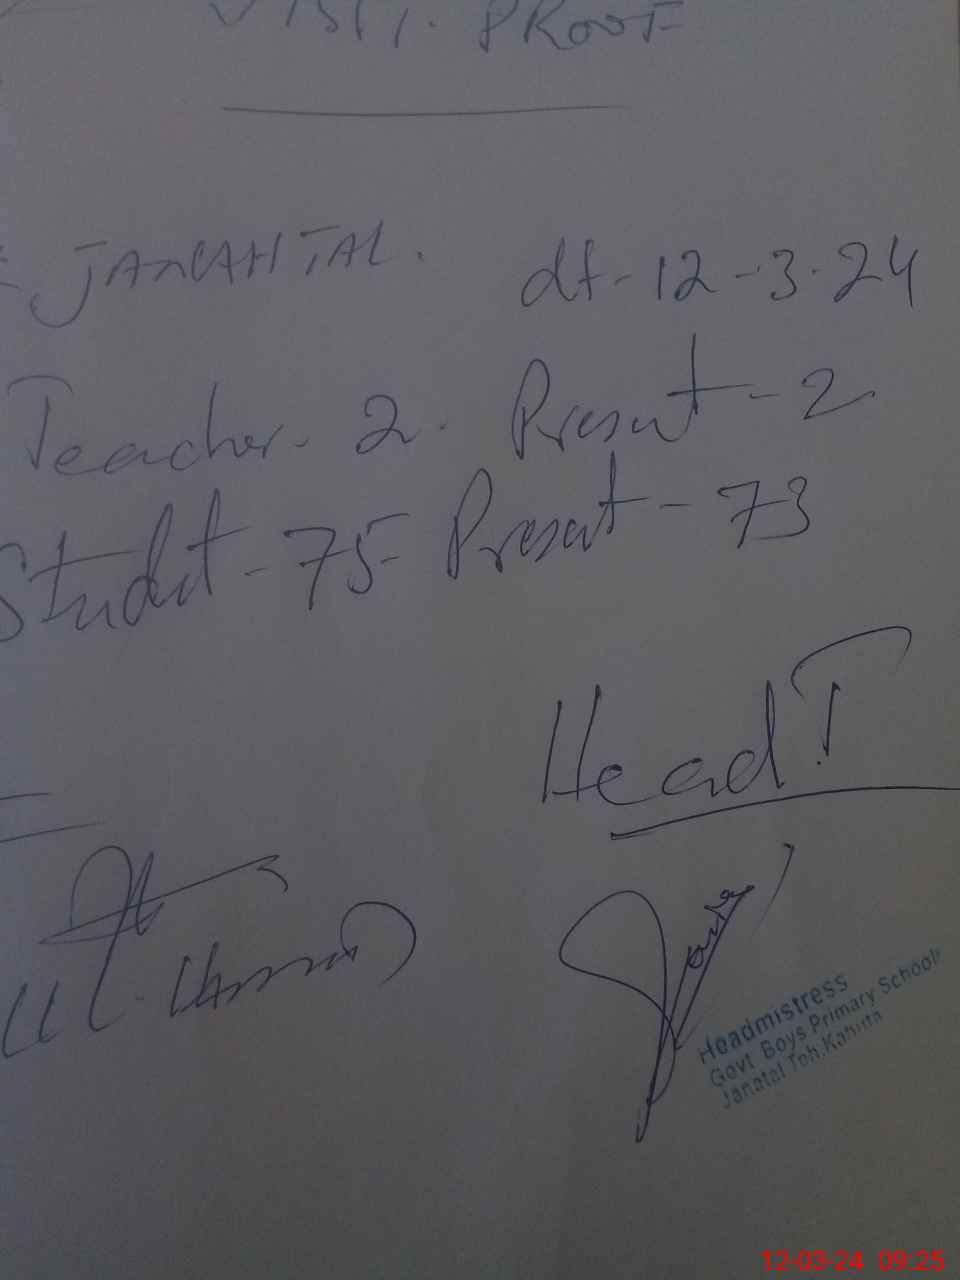 VISIT. PROOF
JANAHTAL. dt-12-3-24
Teacher. 2. Present-2
Student-75-Present-73
Head T
Headmistress
Govt Boys Primary School
Janatal Teh.Kahuta
12-03-24 09:25